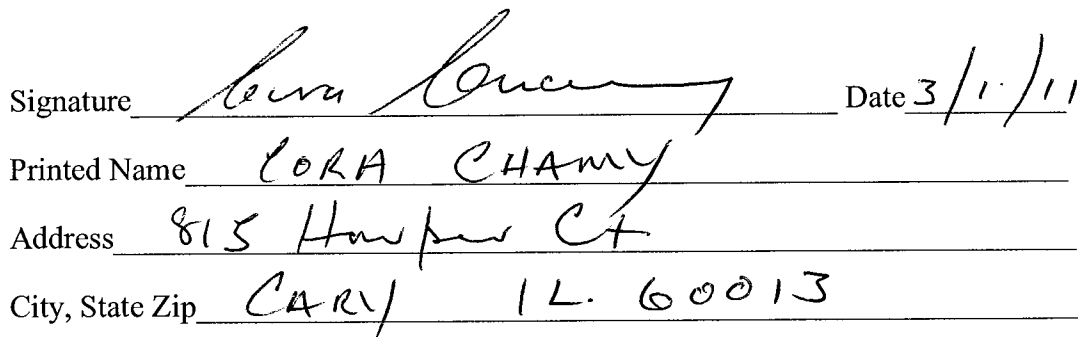 Signature Date 3/1/11
Printed Name CORA CHAMY
Address 815 Harper Ct
City, State Zip CARY IL. 60013